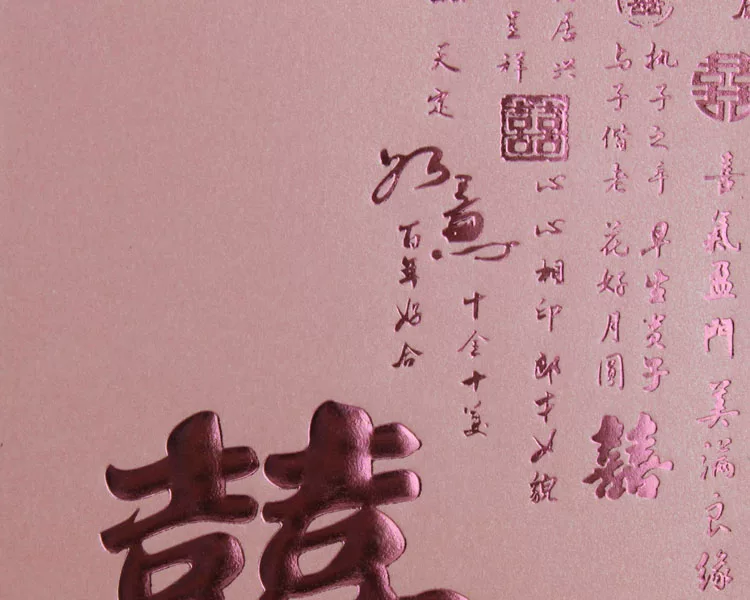 囍
喜氣盈門 美滿良缘
囍
执子之手 早生贵子
与子偕老 花好月圓
囍
居兴
囍
心心相印 郎才女貌
呈祥
十全十美
天定
良缘
百年好合
囍